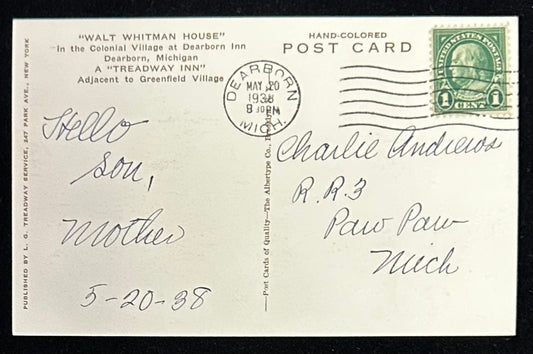 "WALT WHITMAN HOUSE"
In the Colonial Village at Dearborn Inn
Dearborn, Michigan
A "TREADWAY INN"
Adjacent to Greenfield Village
PUBLISHED BY L. G. TREADWAY SERVICE, 247 PARK AVE., NEW YORK
Hello
Son,
Mother
5-20-38
Post Cards of Quality—The Albertype Co.,
HAND-COLORED
POST CARD
DEARBORN
MAY 20
1938
8 PM
MICH.
UNITED STATES POSTAGE
1 CENT 1
Charlie Andrews
R.R.3
Paw Paw
Mich